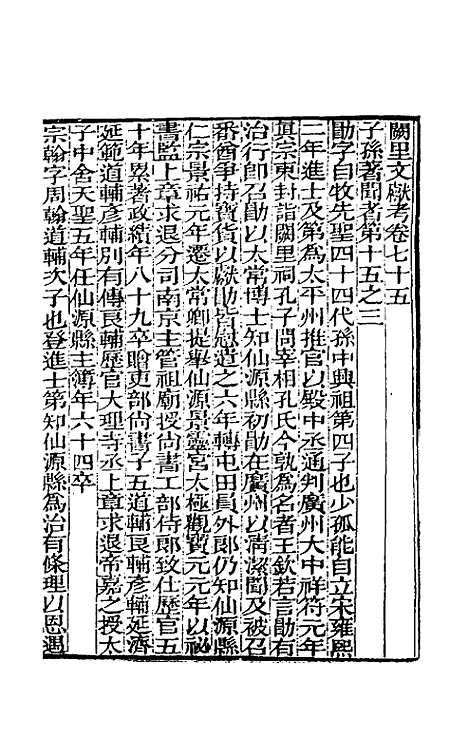 闕里文獻考卷七十五
子孫著聞者第十五之三
勖字自牧先聖四十四代孫中興祖第四子也少孤能自立宋雍熙
二年進士及第為太平州推官以殿中丞通判廣州大中祥符元年
真宗東封詣闕里祠孔子問宰相孔氏今孰為名者王欽若言勖有
治行即召勖以太常博士知仙源縣初勖在廣州以清潔聞及被召
番酋爭持寶貨以獻勖皆慰遣之六年轉屯田員外郎仍知仙源縣
仁宗景祐元年遷太常卿提舉仙源景靈宮太極觀寶元元年以祕
書監上章求退分司南京主管祖廟授尚書工部侍郎致仕歷官五
十年累著政績年八十九卒贈吏部尚書子五道輔良輔彥輔延濟
延範道輔彥輔別有傳良輔歷官大理寺丞上章求退帝嘉之授太
子中舍天聖五年任仙源縣主簿年六十四卒
宗翰字周翰道輔次子也登進士第知仙源縣為治有條理以恩遇